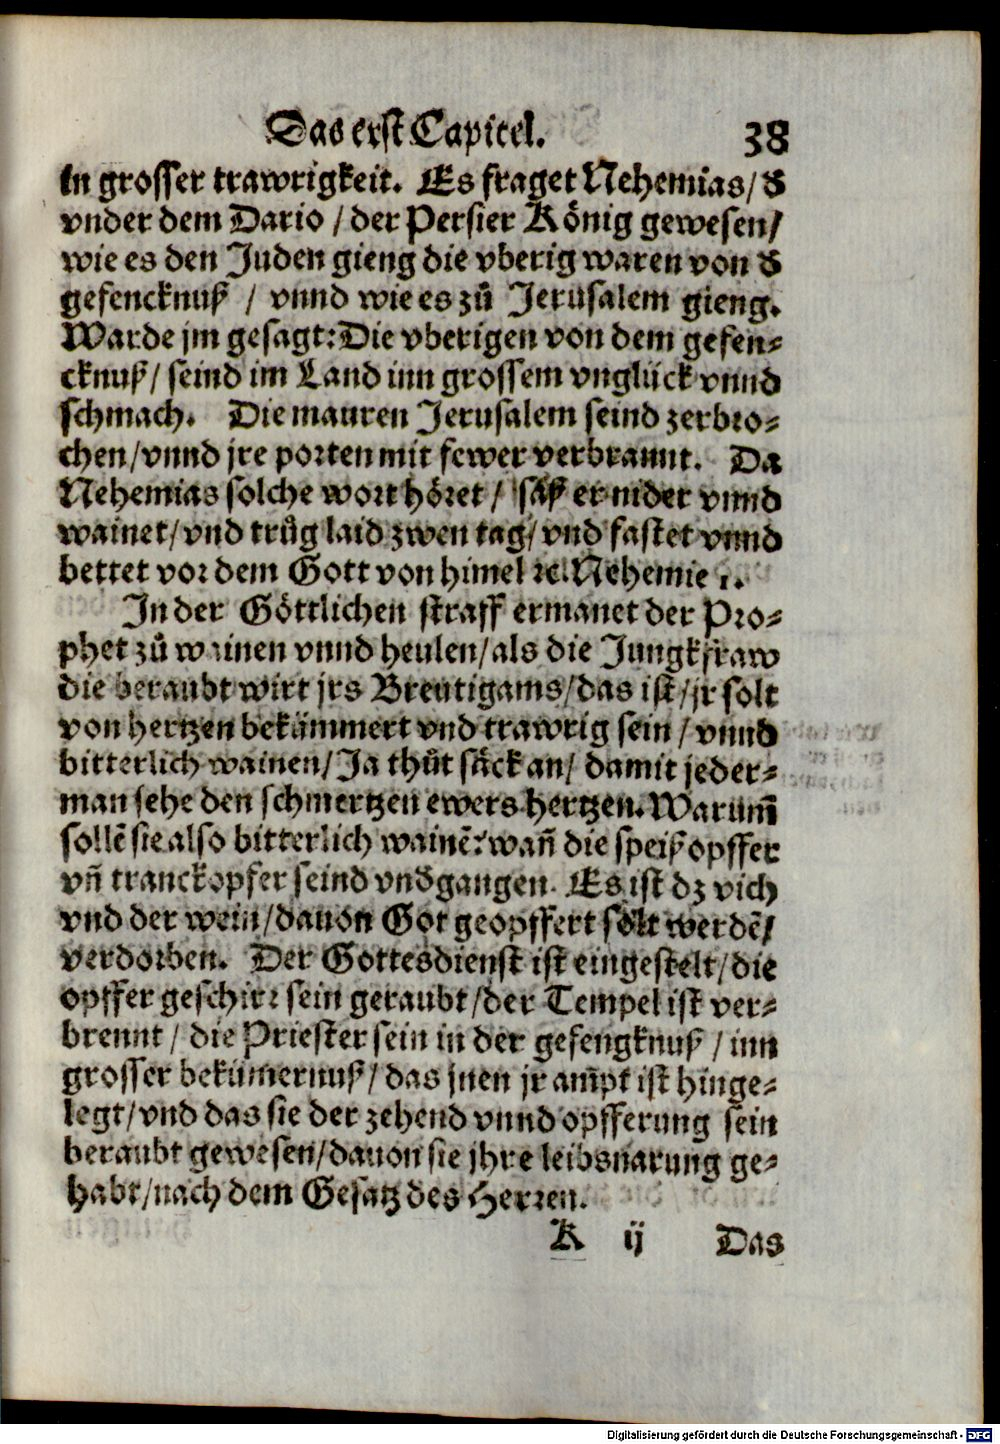 Das erst Capitel. 38
in grosser trawrigkeit. Es fraget Nehemias/ d
vnder dem Dario / der Persier König gewesen/
wie es den Juden gieng die vberig waren von d
gefencknuß / vnnd wie es zů Jerusalem gieng.
Warde jm gesagt: Die vberigen von dem gefen-
cknuß/ seind im Land inn grossem vnglück vnnd
schmach. Die mauren Jerusalem seind zerbro-
chen/vnnd jre porten mit fewer verbrannt. Da
Nehemias solche wort höret/ saß er nider vnnd
wainet/vnd trůg laid zwen tag/ vnd fastet vnnd
bettet vor dem Gott von himel ꝛc. Nehemie 1.
In der Göttlichen straff ermanet der Pro-
phet zů wainen vnnd heulen/als die Jungkfraw
die beraubt wirt jrs Breutigams/das ist/jr solt
von hertzen bekümmert vnd trawrig sein/ vnnd
bitterlich wainen/Ja thůt säck an/ damit jeder-
man sehe den schmertzen ewers hertzen. Warum̃
sollẽ sie also bitterlich wainẽ? wañ die speiß opffer
vñ tranckopfer seind vndgangen. Es ist dz vich
vnd der wein/dauon Got geopffert solt werdẽ/
verdorben. Der Gottesdienst ist eingestelt/die
opffer geschirr sein geraubt/der Tempel ist ver-
brennt/ die Priester sein in der gefengknuß/inn
grosser bekümernuß/das jnen jr am̃pt ist hinge-
legt/vnd das sie der zehend vnnd opfferung sein
beraubt gewesen/dauon sie jhre leibsnarung ge-
habt/nach dem Gesatz des Herren.
K ij Das
Digitalisierung gefördert durch die Deutsche Forschungsgemeinschaft - DFG